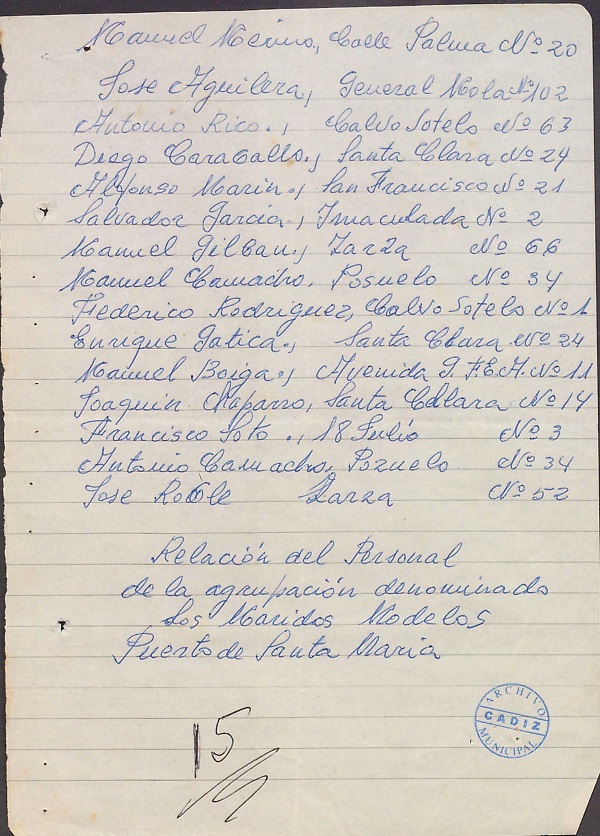 Manuel Merino, Calle Palma Nº 20
Jose Aguilera, General Mola Nº 102
Antonio Rico., Calvo Sotelo Nº 63
Diego Caraballo., Santa Clara Nº 24
Alfonso Marin., San Francisco Nº 21
Salvador Garcia., Inmaculada Nº 2
Manuel Gilban., Zarza Nº 66
Manuel Camacho. Posuelo Nº 34
Federico Rodriguez, Calvo Sotelo Nº 1
Enrique Gatica., Santa Clara Nº 24
Manuel Boiga., Avenida J.F.E.A. Nº 11
Joaquin Chaparro, Santa Cllara Nº 14
Francisco Soto ., 18 Julio Nº 3
Antonio Camacho. Pozuelo Nº 34
Jose Roble Zarza Nº 52
Relación del Personal
de la agrupación denominado
Los Maridos Modelos
Puerto de Santa Maria
15
ARCHIVO
CADIZ
MUNICIPAL